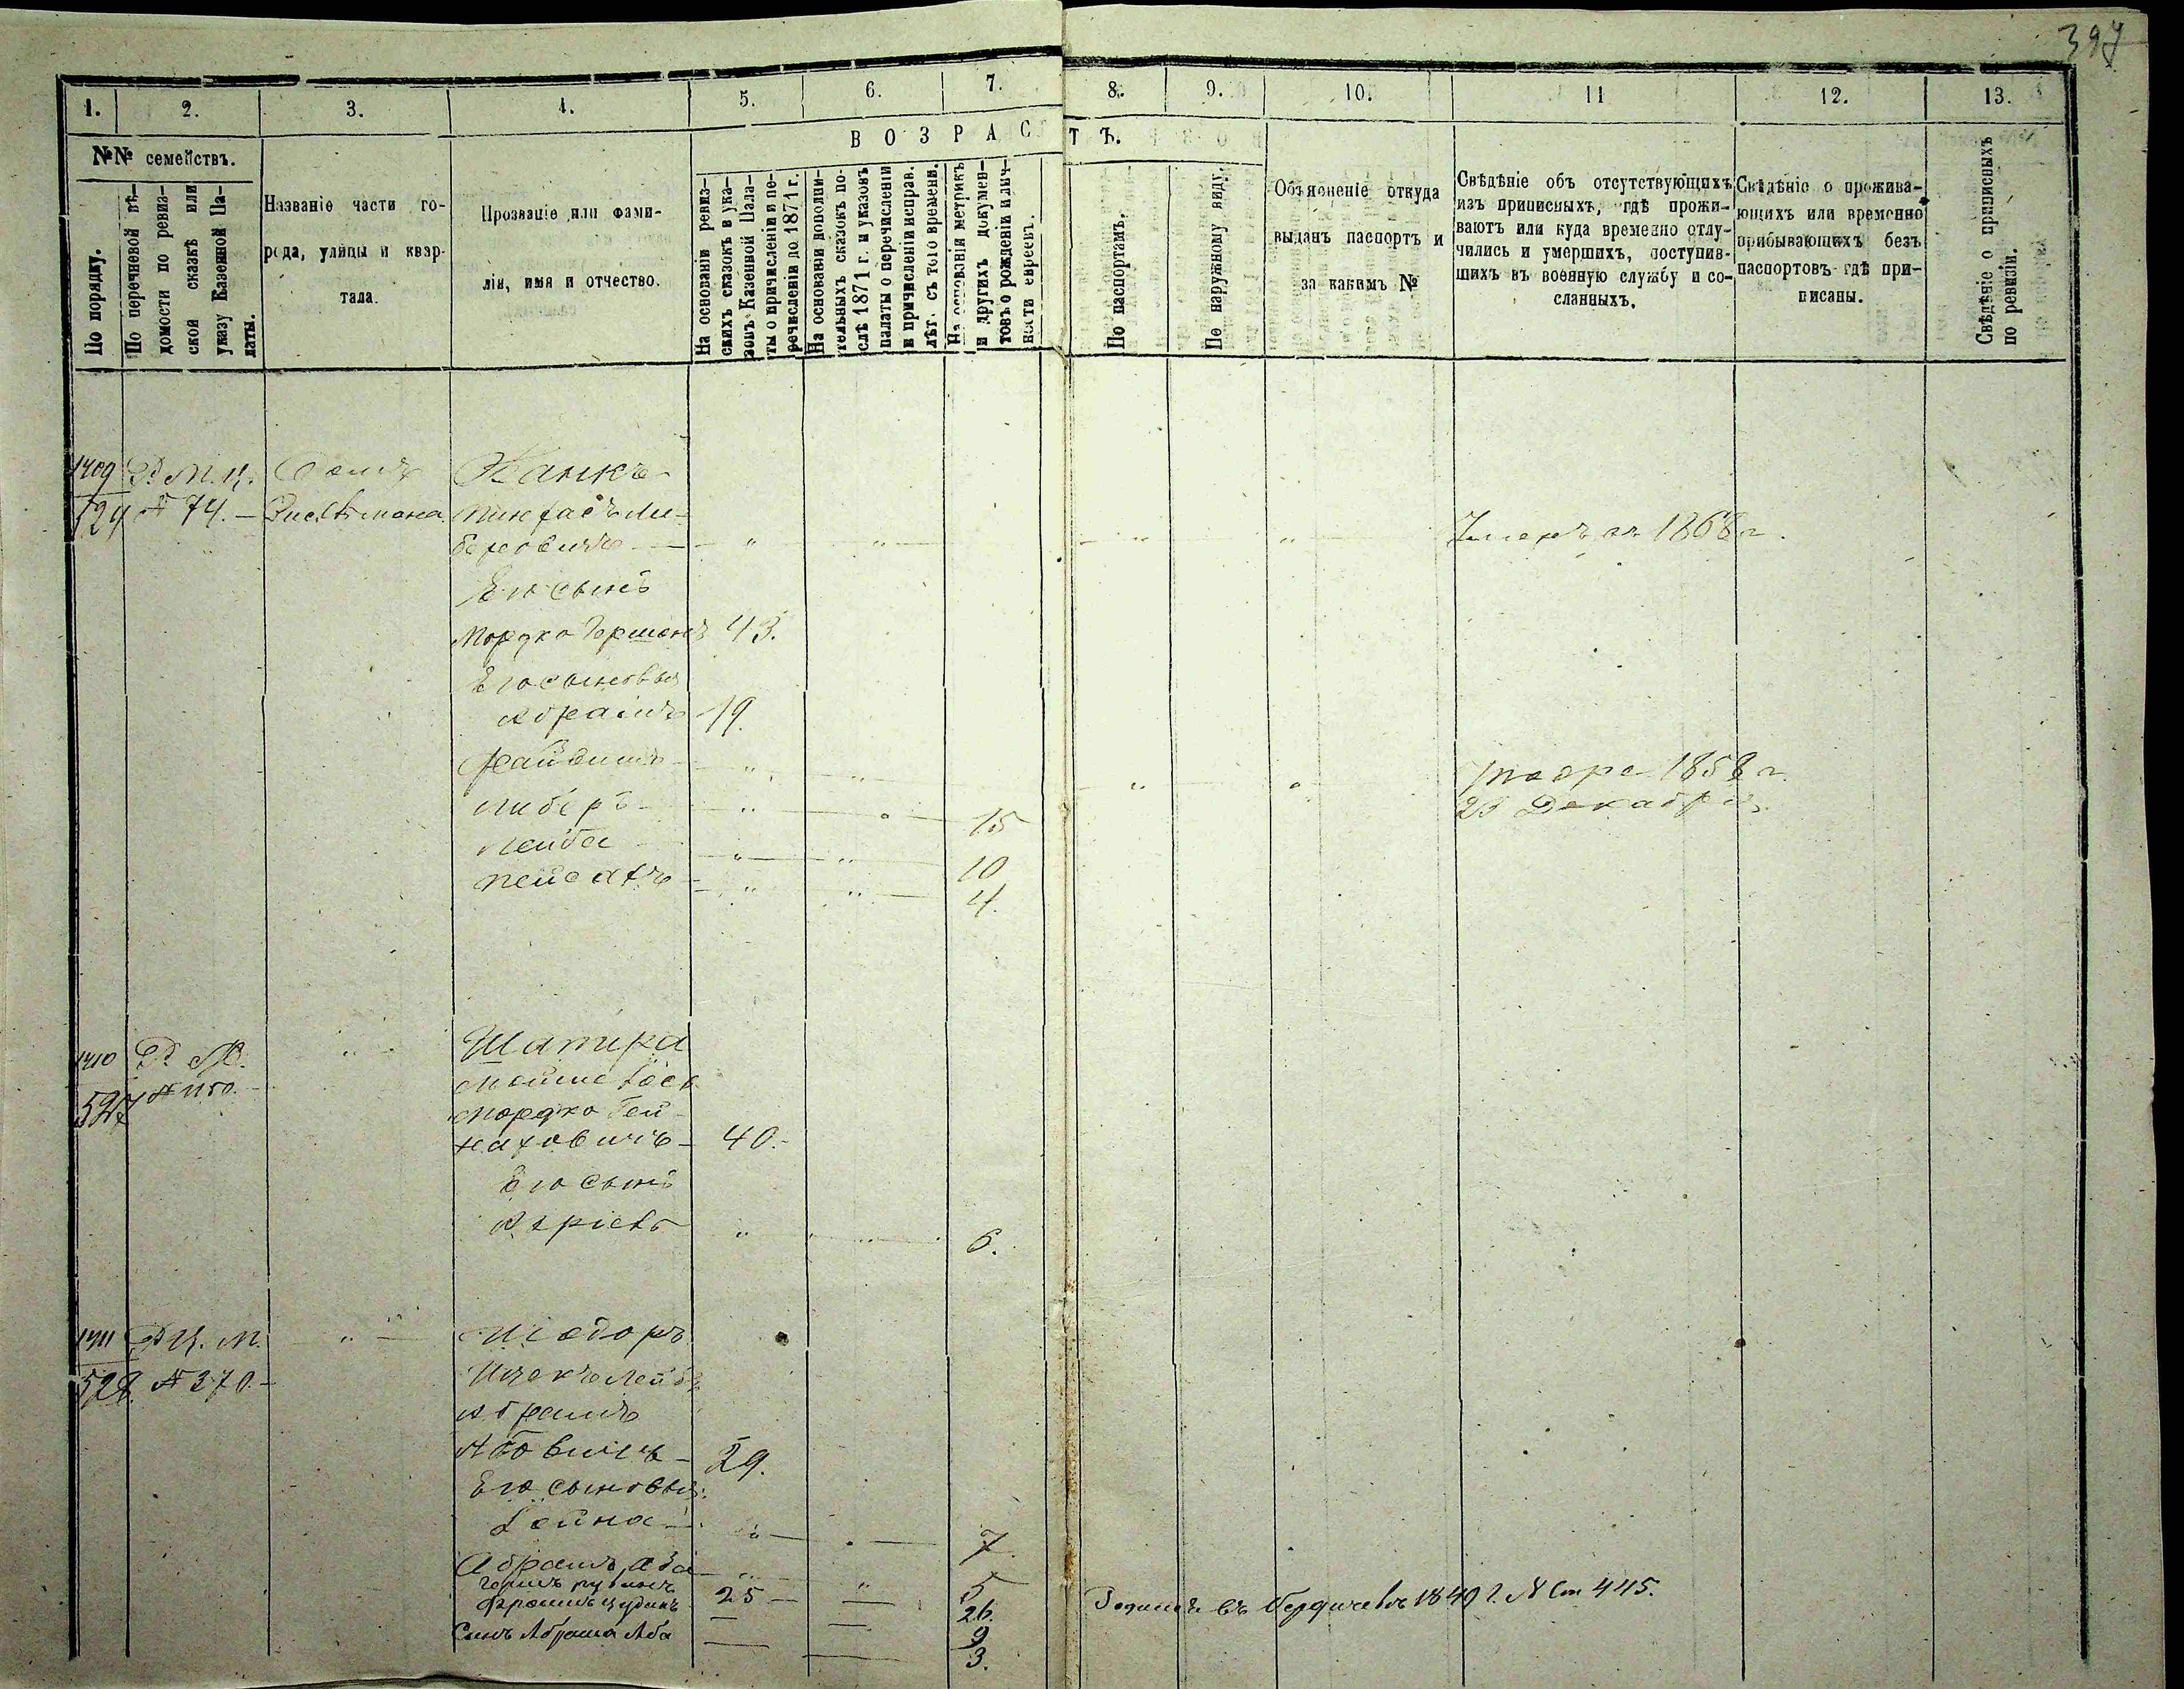 397
1. 2. 3. 4. 5. 6. 7. 8. 9. 10. 11 12. 13.
№№ семействъ.
По порядку.
По перечневой вѣ-
домости по ревиз-
ской сказкѣ или
указу Казенной Па-
латы.
Названіе части го-
рода, улицы и квар-
тала.
Прозваніе или фами-
лія, имя и отчество.
ВОЗРАСТЪ.
На основаніи ревиз-
скихъ сказокъ и ука-
зовъ Казенной Пала-
ты о причисленіи и пе-
речисленіи до 1871 г.
На основаніи дополни-
тельныхъ сказокъ по-
слѣ 1871 г. и указовъ
палаты о перечисленіи
и причисленіи исправ.
лѣт. съ того времени.
На основаніи метрикъ
и другихъ докумен-
товъ о рожденіи и лич-
ности евреевъ.
По паспортамъ.
По наружному виду.
Объясненіе откуда
выданъ паспортъ и
за какимъ №
Свѣдѣніе объ отсутствующихъ
изъ приписныхъ, гдѣ прожи-
ваютъ или куда временно отлу-
чились и умершихъ, поступив-
шихъ въ военную службу и со-
сланныхъ.
Свѣдѣніе о прожива-
ющихъ или временно
прибывающихъ безъ
паспортовъ гдѣ при-
писаны.
Свѣдѣніе о приписныхъ
по ревизіи.
1409 Р. М. Ц.
№ 74.—
Пинхасъ Ли-
беровичъ — " — " — " " Умеръ въ 1868 г.
Его сынъ
Мордко Гершонъ 43.
Его сыновья
Абрамъ 19.
" " " " 1858 г.
Либеръ " " 15 23 Декабря
Лейба " " 10
Пейсахъ " " 4.
1410 Р. М. "
527 № 1150.
Шапира
Мордко Гей-
наховичъ — 40.
Его сынъ
" " 6.
1411 Р. Ц. М. " —
528. № 270.—
Ицекъ Лейбъ
Абрамъ
Абовичъ — 29.
Его сыновья:
Хойна — " — " — 7.
Абрамъ Аба — " " 5
25 — — 26. въ Бердичевѣ 1849 г. № 445.
— — 9
Сынъ Абрама Аба — — 3.